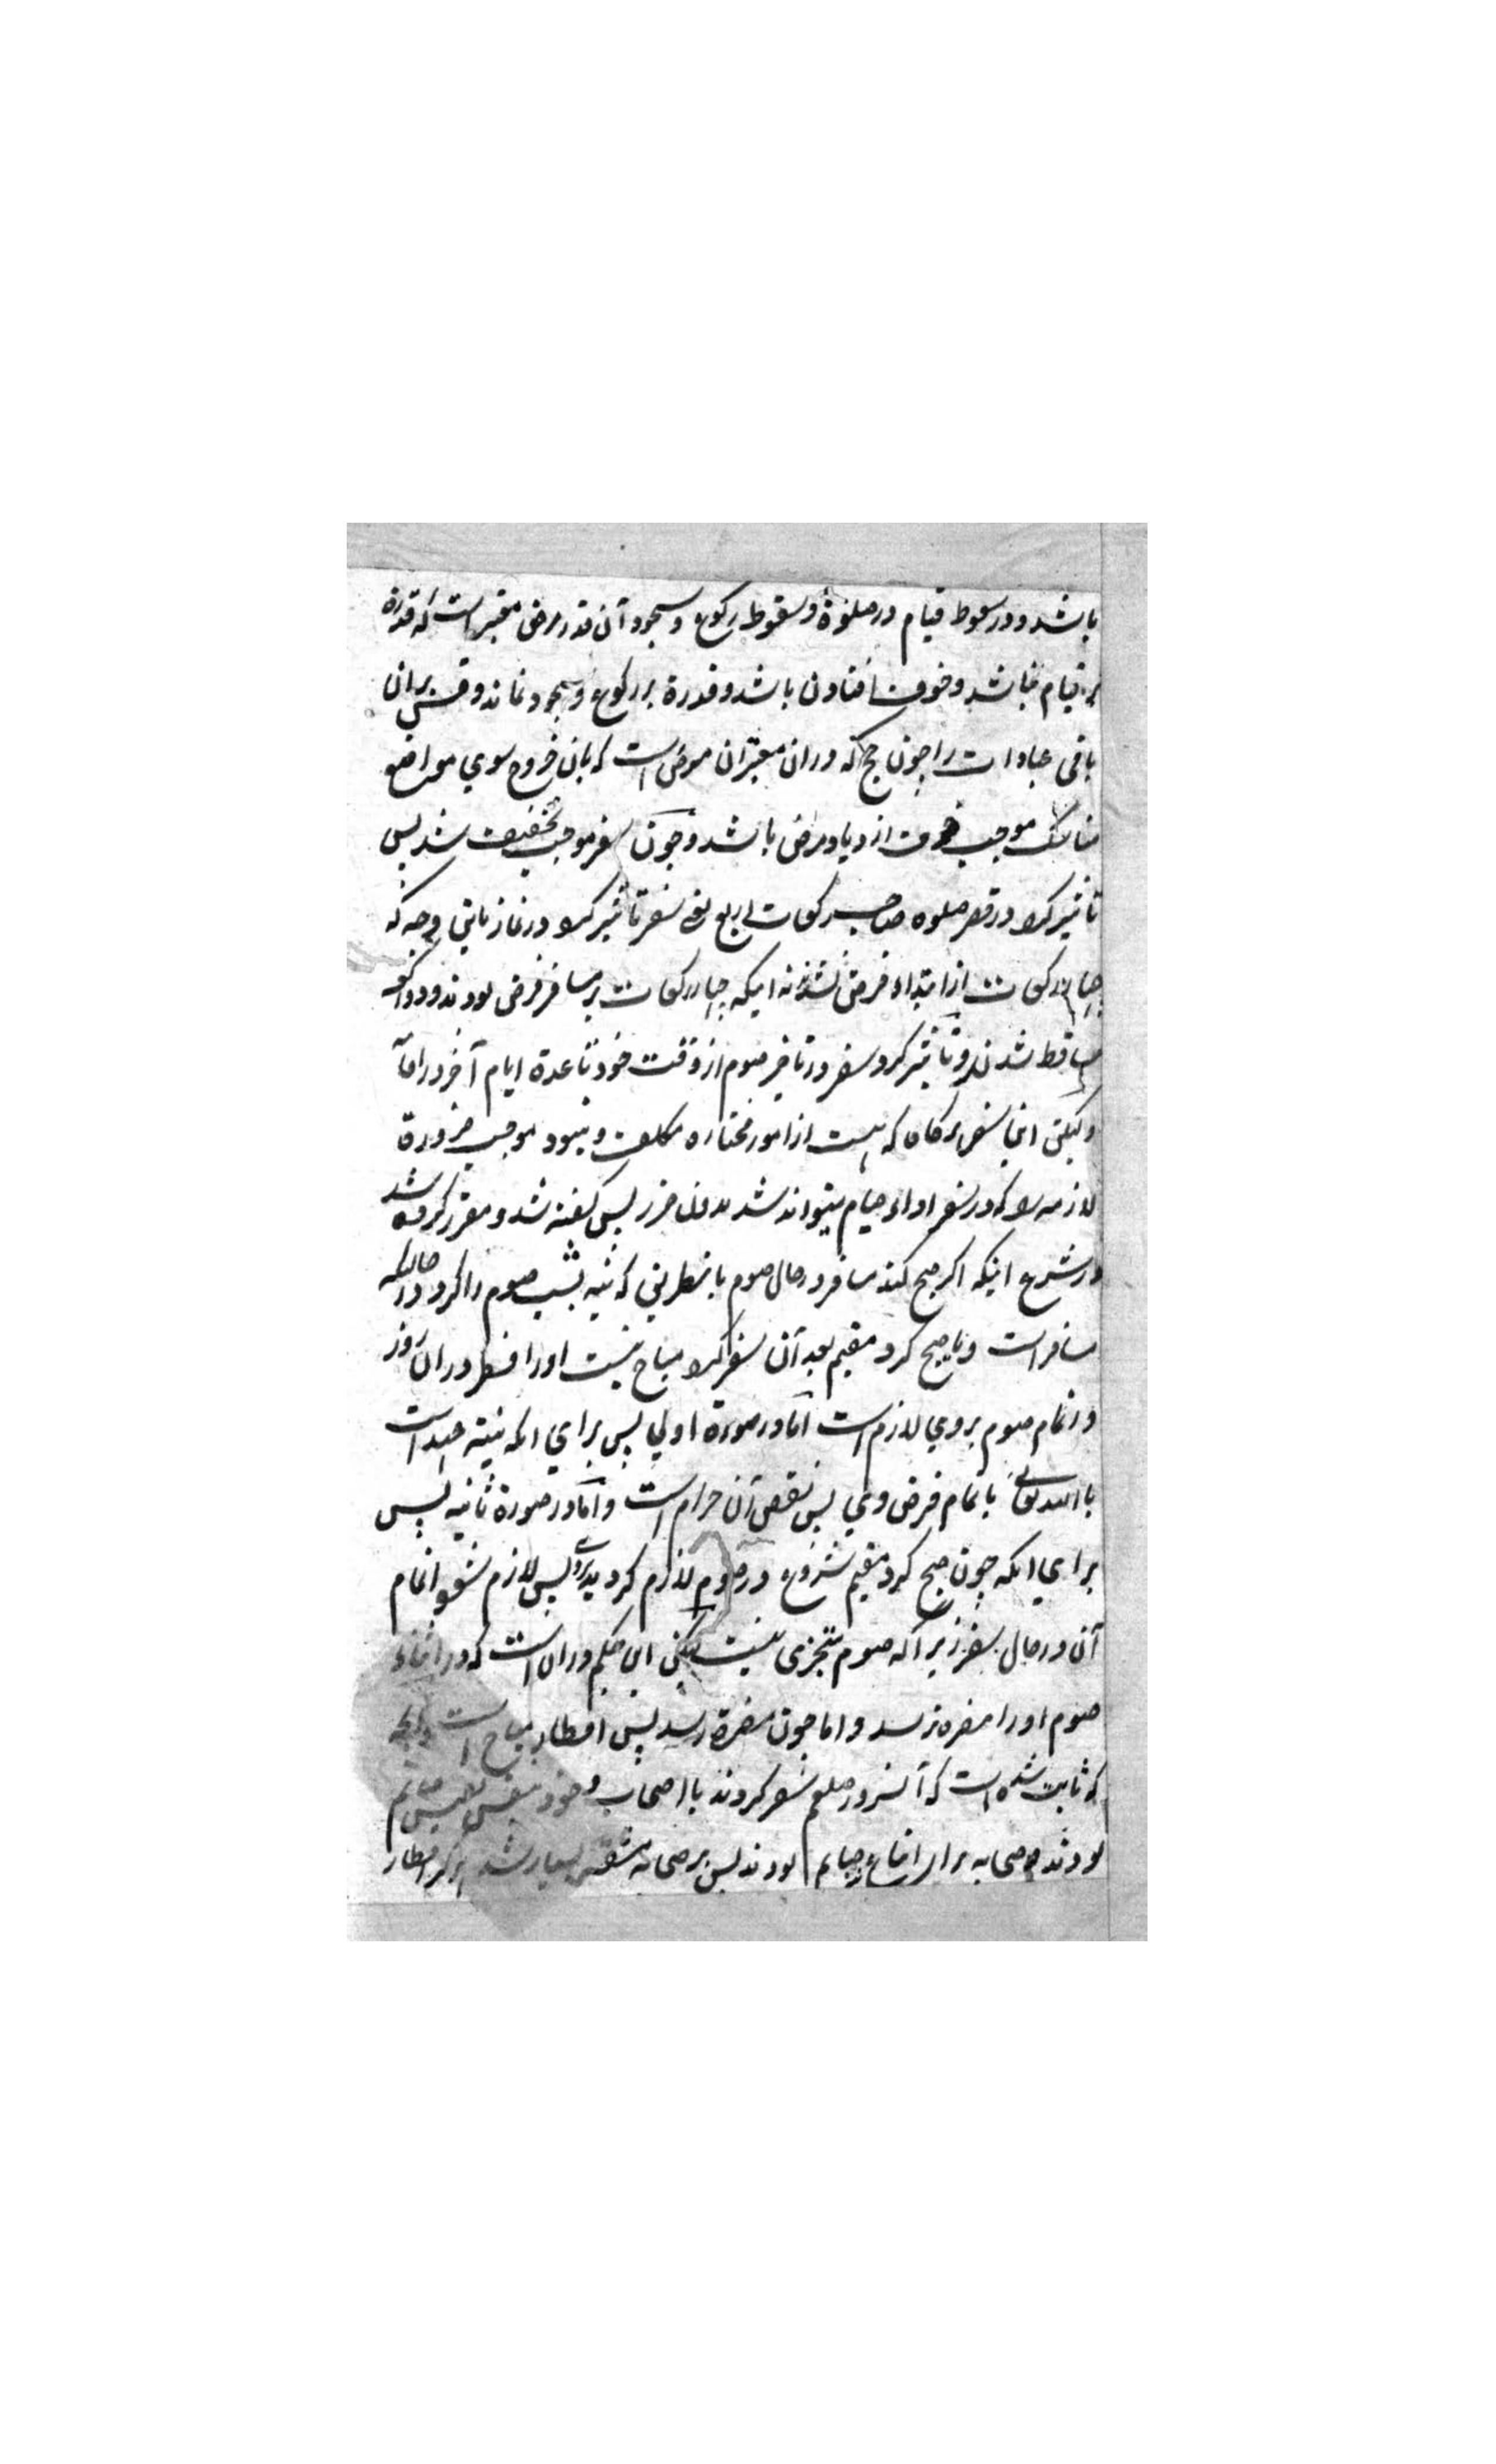 باشد و در سقوط قیام در صلوة و سقوط رکوع و سجود آن قدر مرض معتبر است که قدرة
بر قیام نباشد و خوف افتادن باشد و قدرة بر رکوع و سجود نماند و قس بران
باقی عبادات را چون حج که دران معتبر ان مرض است که بان خروج سوی مواضع
مناسک موجب خوف ازدیاد مرض باشد و چون سفر موجب تخفیف شد پس
تاثیر کرد در قصر صلوه صاحب رکعات اربع یعنی سفر تاثیر کرد در نماز باین وجه که
چهار رکعات از ابتداء فرض نشد نه اینکه چهار رکعات بر مسافر فرض بودند و دو رکعة
ساقط شدند و تاثیر کرد سفر در تاخیر صوم از وقت خود تا عدة ایام آخر در اما
ولیکن این سفر هرگاه که هست از امور مختاره مکلف و نبود موجب ضرورة
لازمه را که در سفر اداء صیام میتواند شد بدون ضرر پس گفته شد و مقرر کرده شد
در شرع اینکه اگر صبح کند مسافر در حال صوم باینطریق که نیه بشب صوم را کرد در حالیکه
مسافر است و یا صبح کرد مقیم بعد آن سفر کرد مباح نیست اورا فطر دران روز
و اتمام صوم بروی لازم است اما در صورة اولی پس برای انکه نیته عهد است
با الله تعالی باتمام فرض وی پس نقض آن حرام است و اما در صورة ثانیه پس
برای انکه چون صبح کرد مقیم شروع در صوم لازم کرد بروی پس لازم شد اتمام
آن در حال سفر زیرا که صوم متجزی نیست لیکن این حکم دران است که در اثناء
صوم اورا مضره نرسد و اما چون مضرة رسد پس افطار مباح است
که ثابت شده است که آنسرور صلعم سفر کردند با اصحاب و خود بنفس نفیس صائم
بودند و صحابه برای اتباع صیام بودند پس بر صحابه مشقت بسیار شد افطار